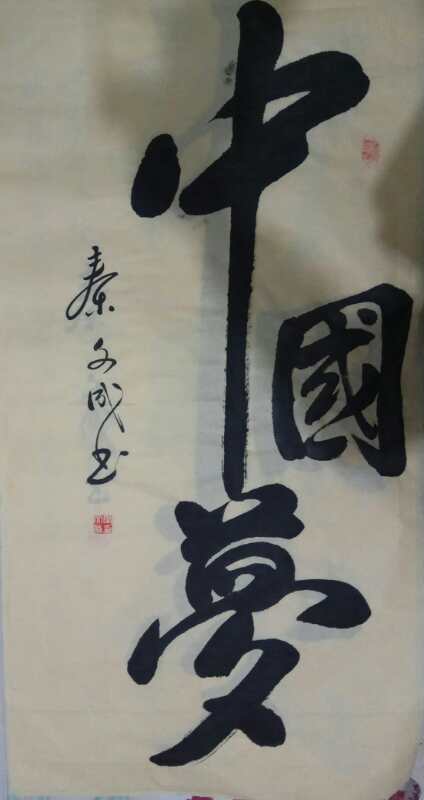 中國夢
秦文成书